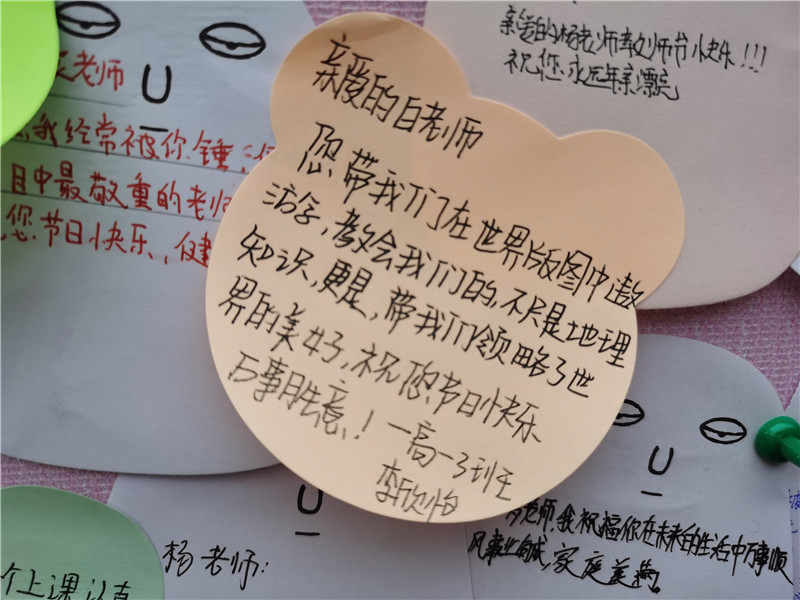 亲爱的白老师
您带我们在世界版图中遨
游,教会我们的,不只是地理
知识,更是,带我们领略了世
界的美好,祝您节日快乐
万事胜意!
一高一3班
李欣怡
老师
我经常被你锤
目中最敬重的老师
您节日快乐、健
亲爱的杨老师教师节快乐!!!
祝您永远年亲漂亮
个上课认真
杨老师:
老师,我祝福你在未来的生活中万事顺
风事业有成,家庭美满。